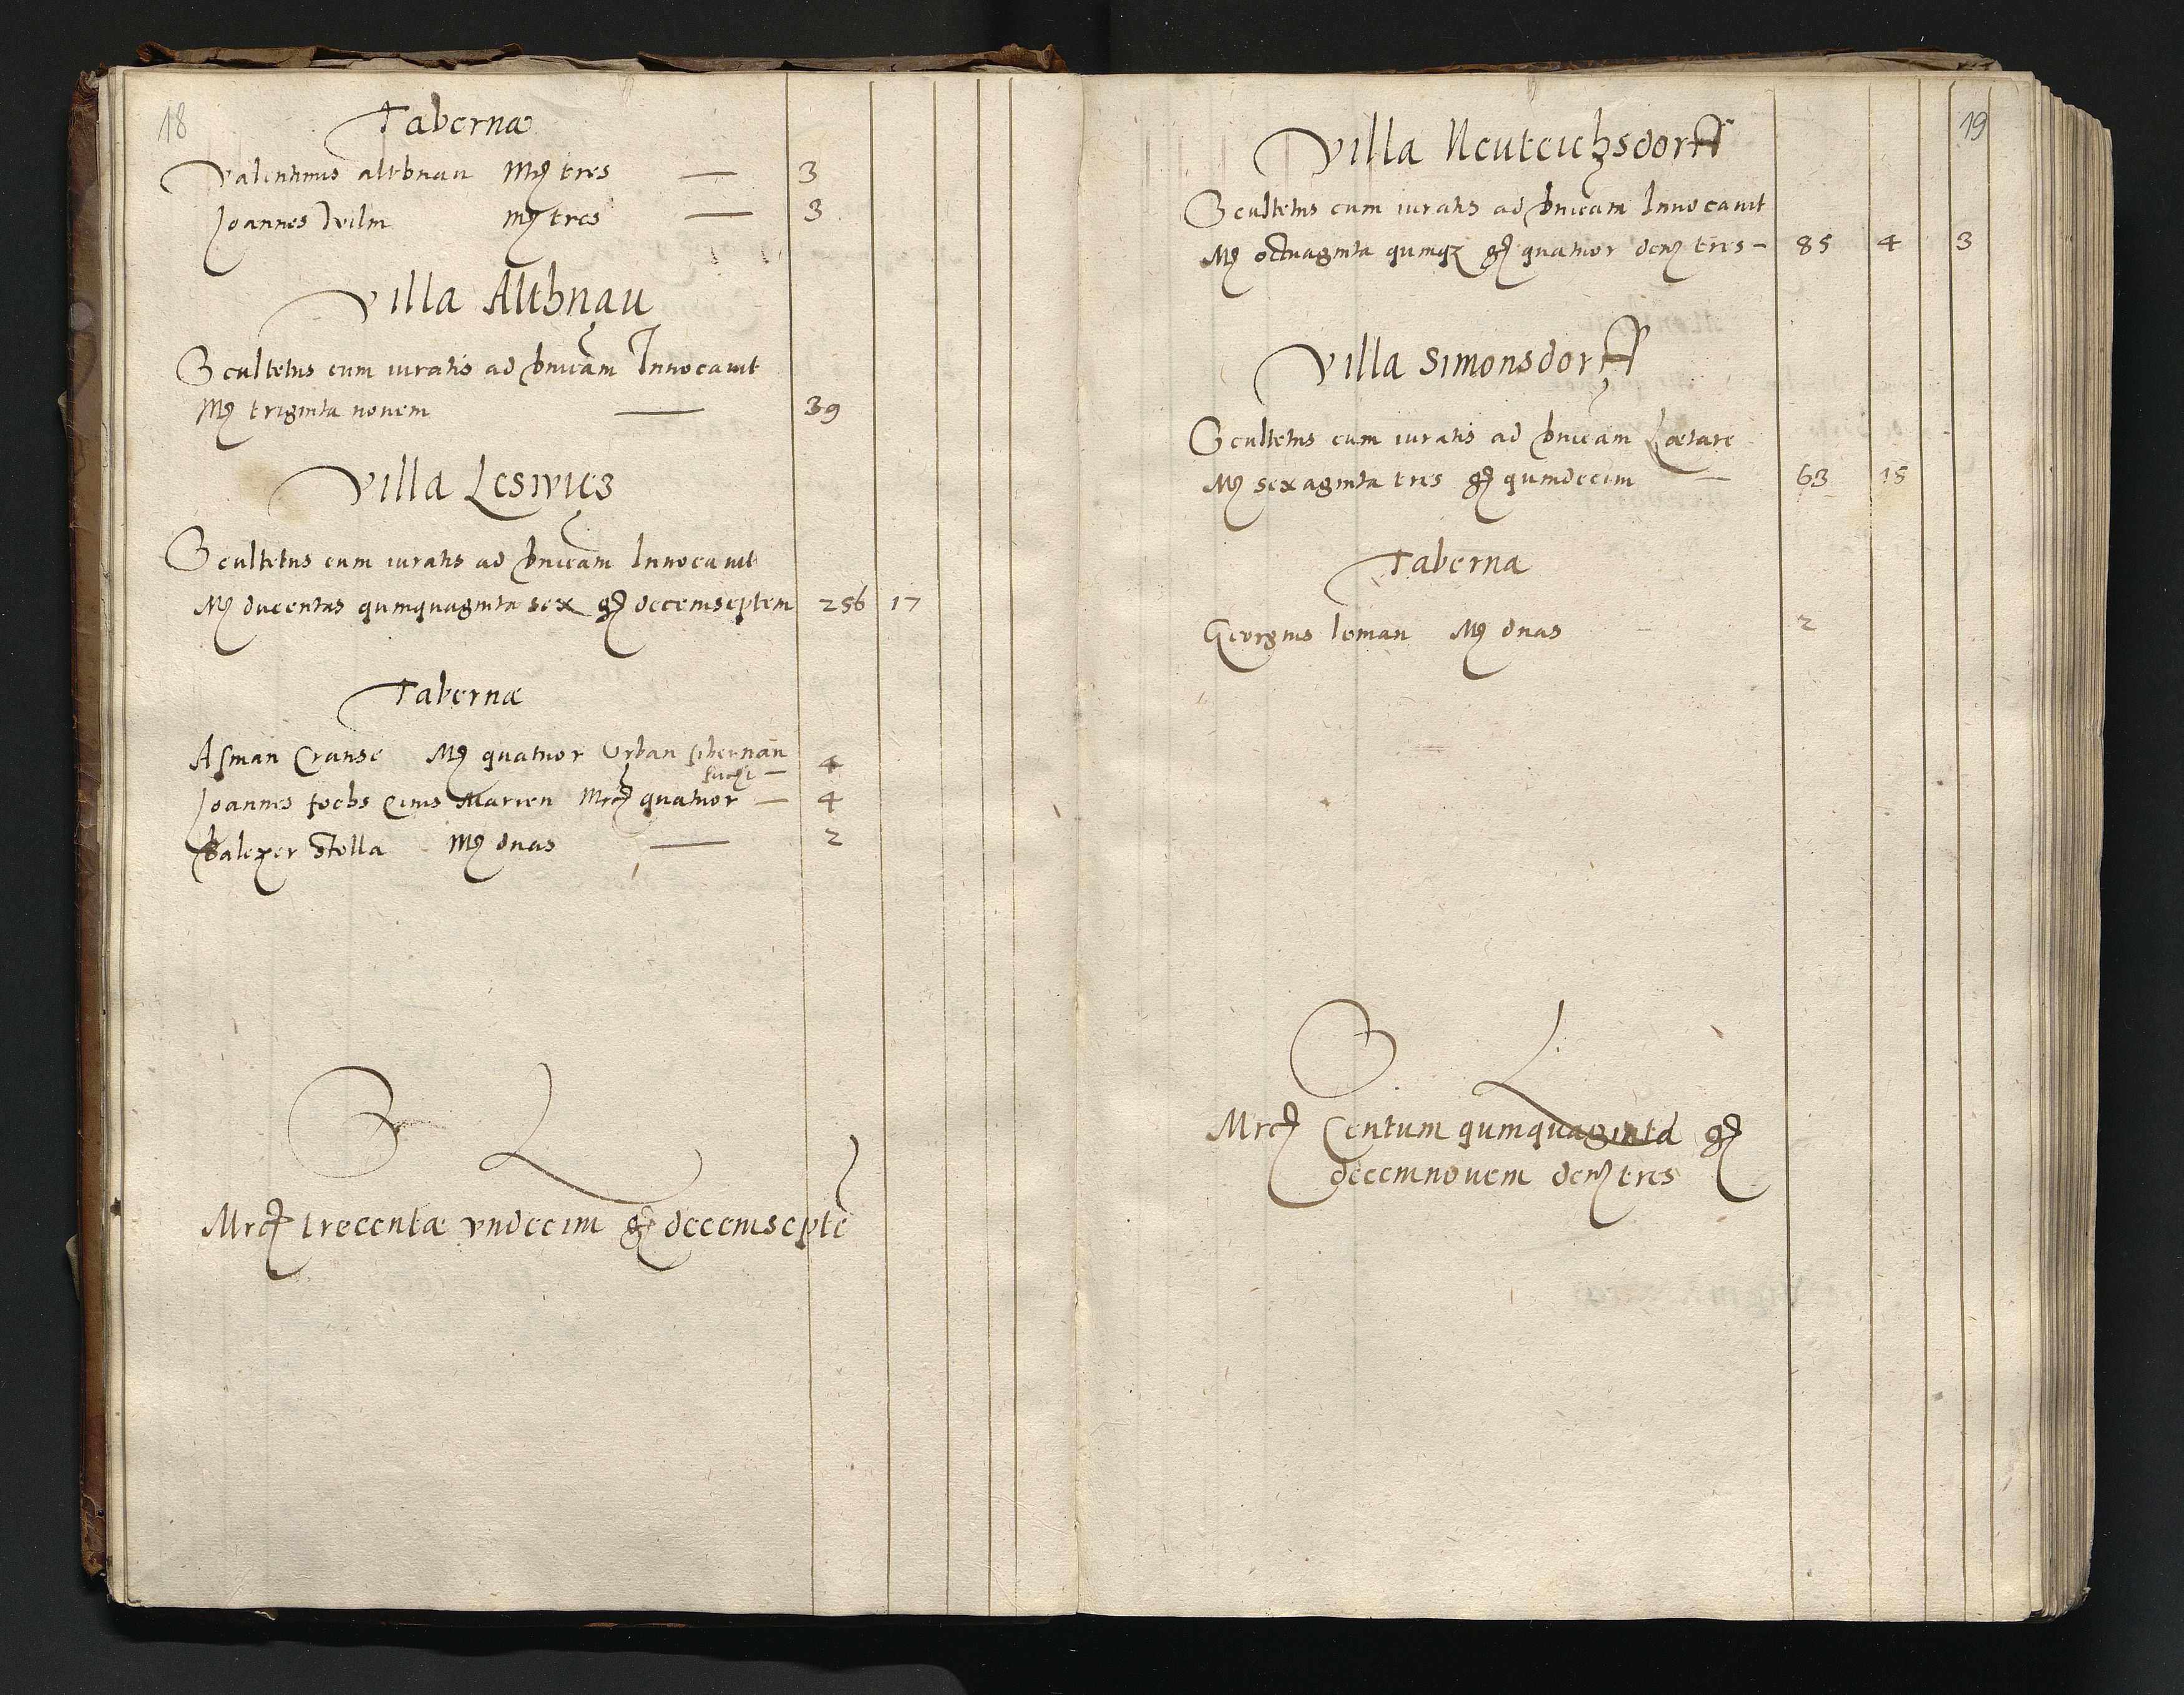 18
Tabernæ
Valentinus altbnau Mrc tres — 3
Joannes Wilm Mrc tres — 3
Villa Altbnau
Scultetus cum iuratis ad dnicam Inuocauit
Mrc triginta nouem — 39
Villa Leswicz
Scultetus cum iuratis ad dnicam Inuocauit
Mrc ducentas quinquaginta sex gr decemseptem 256 17
Tabernæ
Asman Cranse Mrc quatuor Urban 4
Joannes fochs Marien Mrc quatuor — 4
Balczer Stolla Mrc duas — 2
S L
Mrc trecentæ vndecim gr decemseptē
19
Villa Neuteichsdorff
Scultetus cum iuratis ad dnicam Inuocauit
Mrc octuaginta quinqz gr quatuor den tres — 85 4 3
Villa Simonsdorff
Scultetus cum iuratis ad dnicam Lætare
Mrc sexaginta tres gr quindecim — 63 15
Taberna
Georgius loman Mrc duas 2
S L
Mrc Centum quinquaginta gr
decemnouem den tres